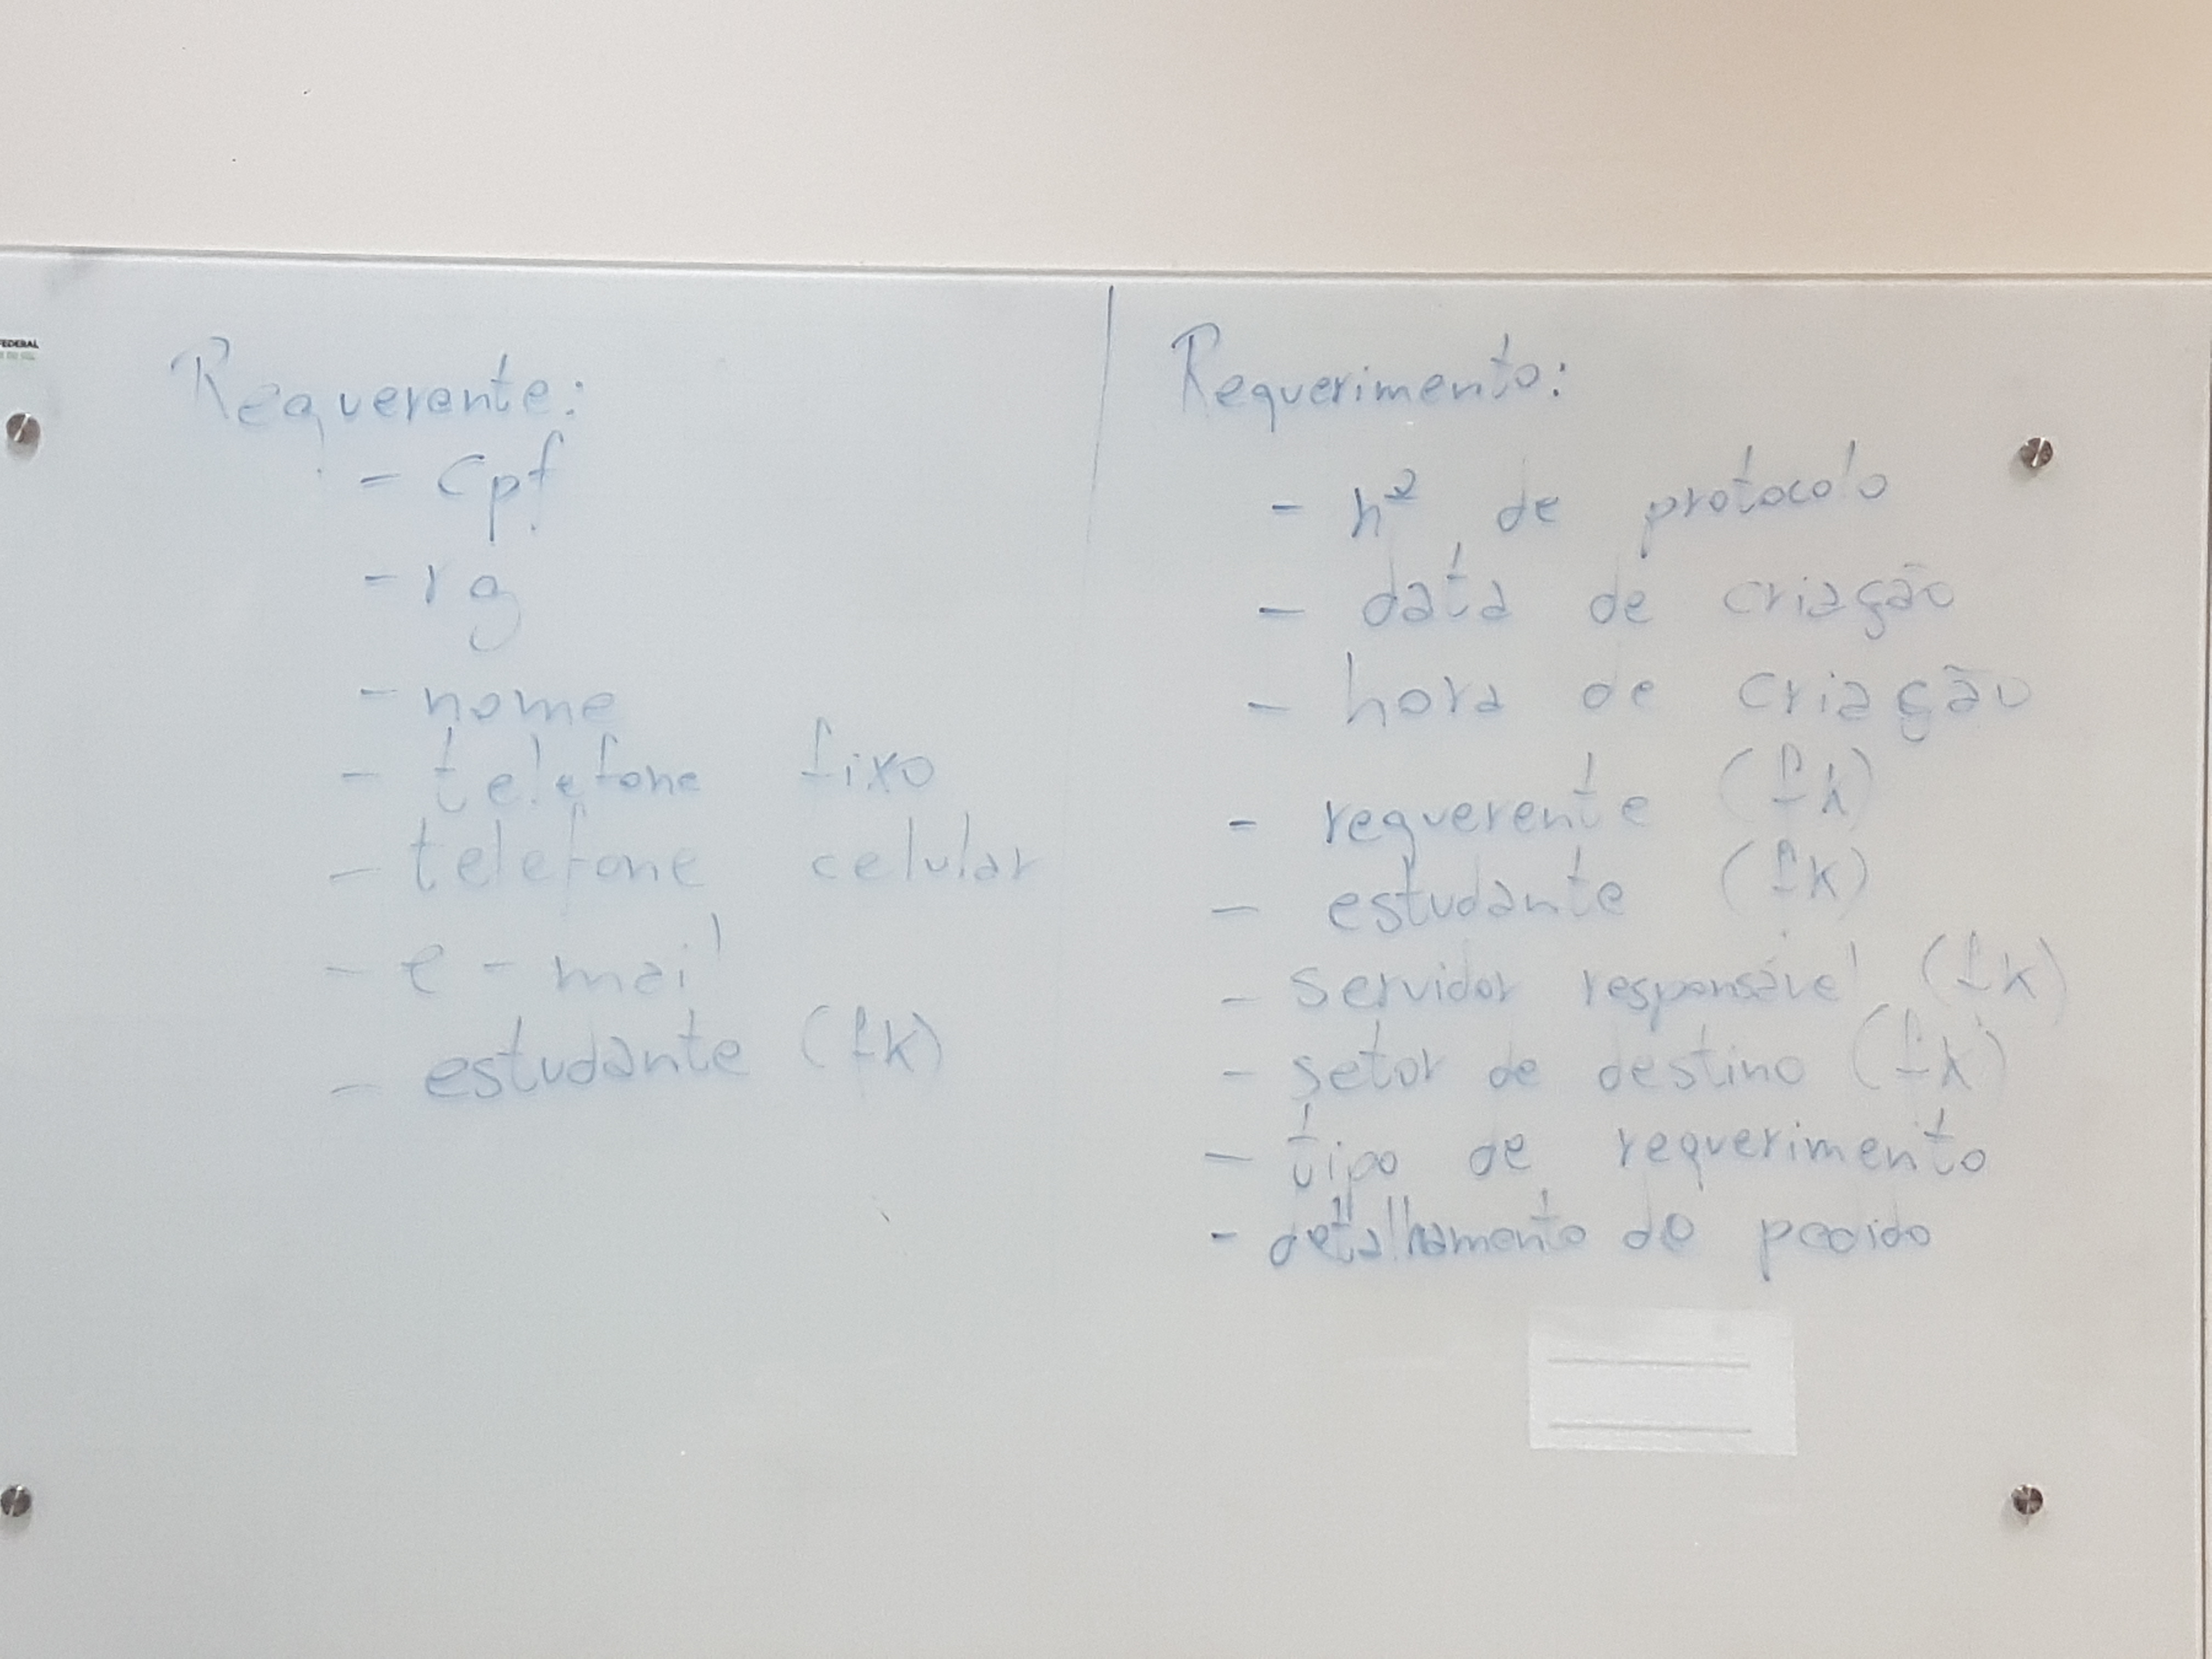 FEDERAL
Requerente:
- cpf
- rg
- nome
- telefone fixo
- telefone celular
- e-mail
- estudante (fk)
Requerimento:
- nº de protocolo
- data de criação
- hora de criação
- requerente (fk)
- estudante (fk)
- servidor responsável (fk)
- setor de destino (fk)
- tipo de requerimento
- detalhamento do pedido